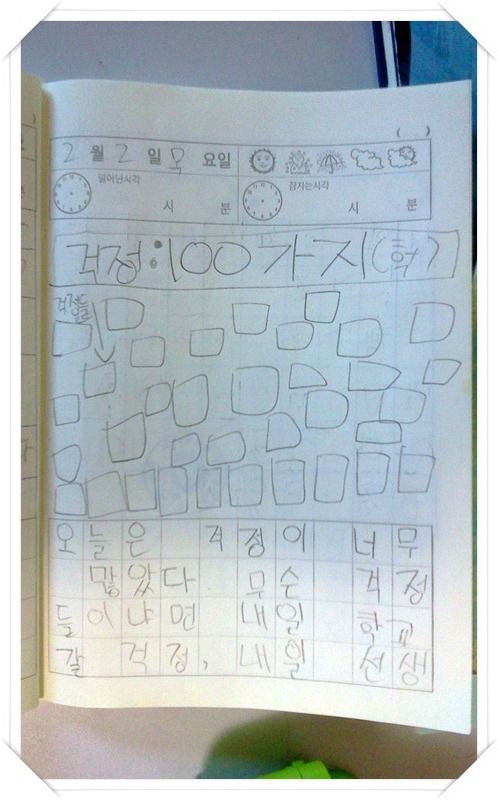 ( )
2 월 2 일 목 요일
일어난시각 잠자는시각
시 분 시 분
걱정:100가지(학)
걱정들
오늘은 걱정이 너무
많았다. 무슨 걱정
들이냐면 내일 학교
갈 걱정, 내일 선생